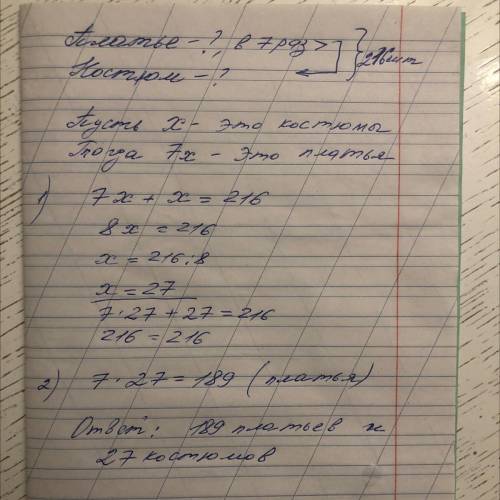 Платье - ?, в 7 раз > } 216шт
Костюм - ?
Пусть х - это костюмы
Тогда 7х - это платья
1) 7х + х = 216
8х = 216
х = 216:8
х = 27
7·27 + 27 = 216
216 = 216
2) 7·27 = 189 (платья)
Ответ: 189 платьев и
27 костюмов